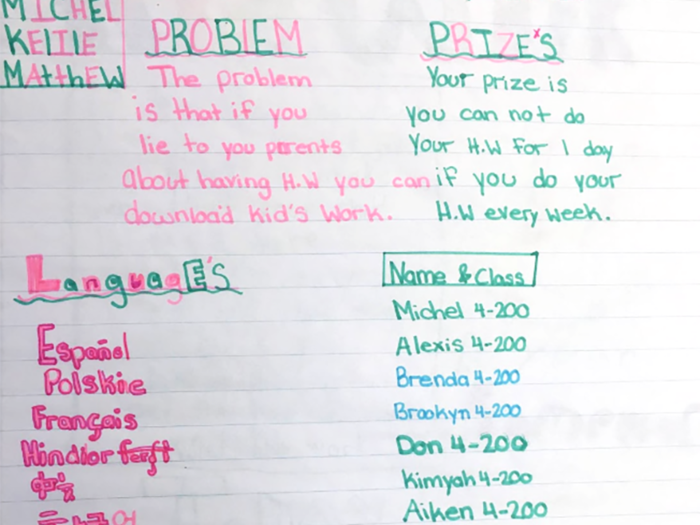 MICHEL
KEllIE
MAtthEW
PROBlEM
The problem
is that if you
lie to you parents
about having H.W you can
download kid's work.
PRIZE'S
Your prize is
you can not do
Your H.W for 1 day
if you do your
H.W every week.
LanguagE'S
Español
Polskie
Français
Hindior
Name & Class
Michel 4-200
Alexis 4-200
Brenda 4-200
Brookyn 4-200
Don 4-200
Kimyah 4-200
Aiken 4-200